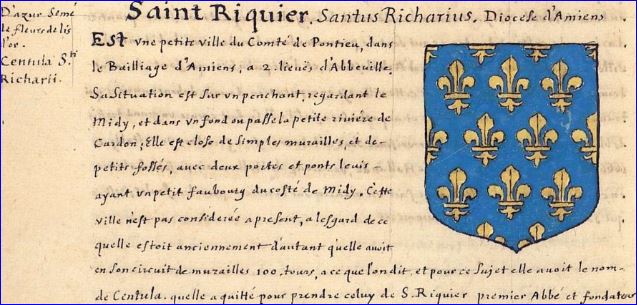 D'azur Semé
de fleurs de lis
d'or.
Centula S.ti
Richarii.
Saint Riquier. Santus Richarius. Diocése d'Amiens
Est vne petite ville du Comté de Pontieu, dans
le Bailliage d'Amiens, a 2. lieuës d'Abbeuille.
Sa Situation est sur vn penchant, regardant le
Midy, et dans vn fond ou passe la petite riuiére de
Cardon; Elle est close de Simples murailles, et de
petits fossés, auec deux portes et ponts leuis
ayant vn petit faubourg du costé de Midy. Cette
ville n'est pas considerée a present, a l'esgard de ce
quelle estoit anciennement d'autant qu'elle auoit
en son circuit de murailles 100. tours, a ce que l'on dit, et pour ce Sujet elle auoit le nom
de Centula. quelle a quitté pour prendre celuy de S. Riquier premier Abbé et fondateur